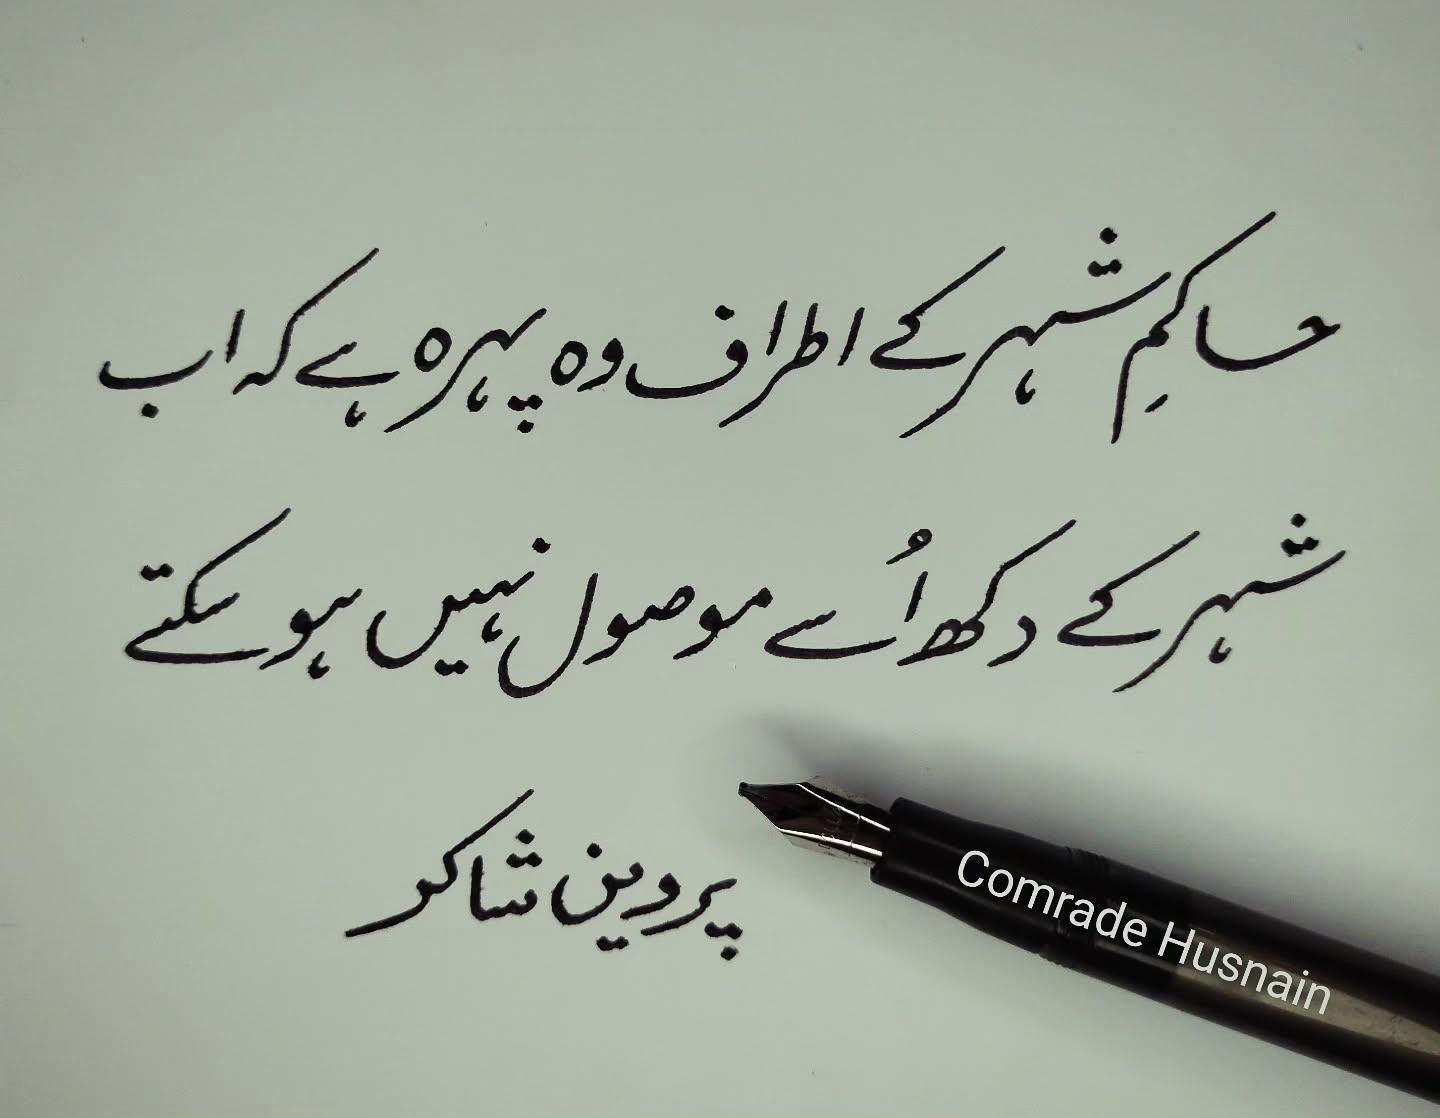 حاکمِ شہر کے اطراف وہ پہرہ ہے کہ اب
شہر کے دکھ اُسے موصول نہیں ہو سکتے
پروین شاکر
Comrade Husnain